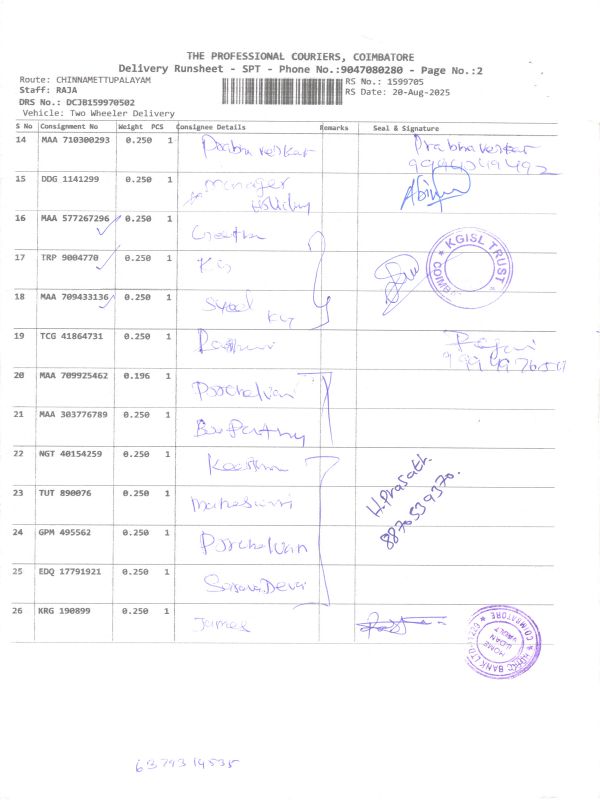 THE PROFESSIONAL COURIERS, COIMBATORE
Delivery Runsheet - SPT - Phone No.:9047080280 - Page No.:2
Route: CHINNAMETTUPALAYAM RS No.: 1599705
Staff: RAJA RS Date: 20-Aug-2025
DRS No.: DCJB159970502
Vehicle: Two Wheeler Delivery
S No Consignment No Weight PCS Consignee Details Remarks Seal & Signature
14 MAA 710300293 0.250 1 Prabhaveskar Prabhaveskar
15 DDG 1141299 0.250 1 manager
16 MAA 577267296 0.250 1 Geetha
17 TRP 9004770 0.250 1 KG
18 MAA 709433136 0.250 1 Syed
19 TCG 41864731 0.250 1
20 MAA 709925462 0.196 1 Porchelvan
21 MAA 303776789 0.250 1
22 NGT 40154259 0.250 1 Keerthi
23 TUT 890076 0.250 1 Maheswari
24 GPM 495562 0.250 1 Porchelvan
25 EDQ 17791921 0.250 1 Devi
26 KRG 190899 0.250 1 James
KGISL TRUST
H.Prasath.
8870539370.
HDFC BANK LTD
COIMBATORE
HOME
LOAN
VAULT
6379314535